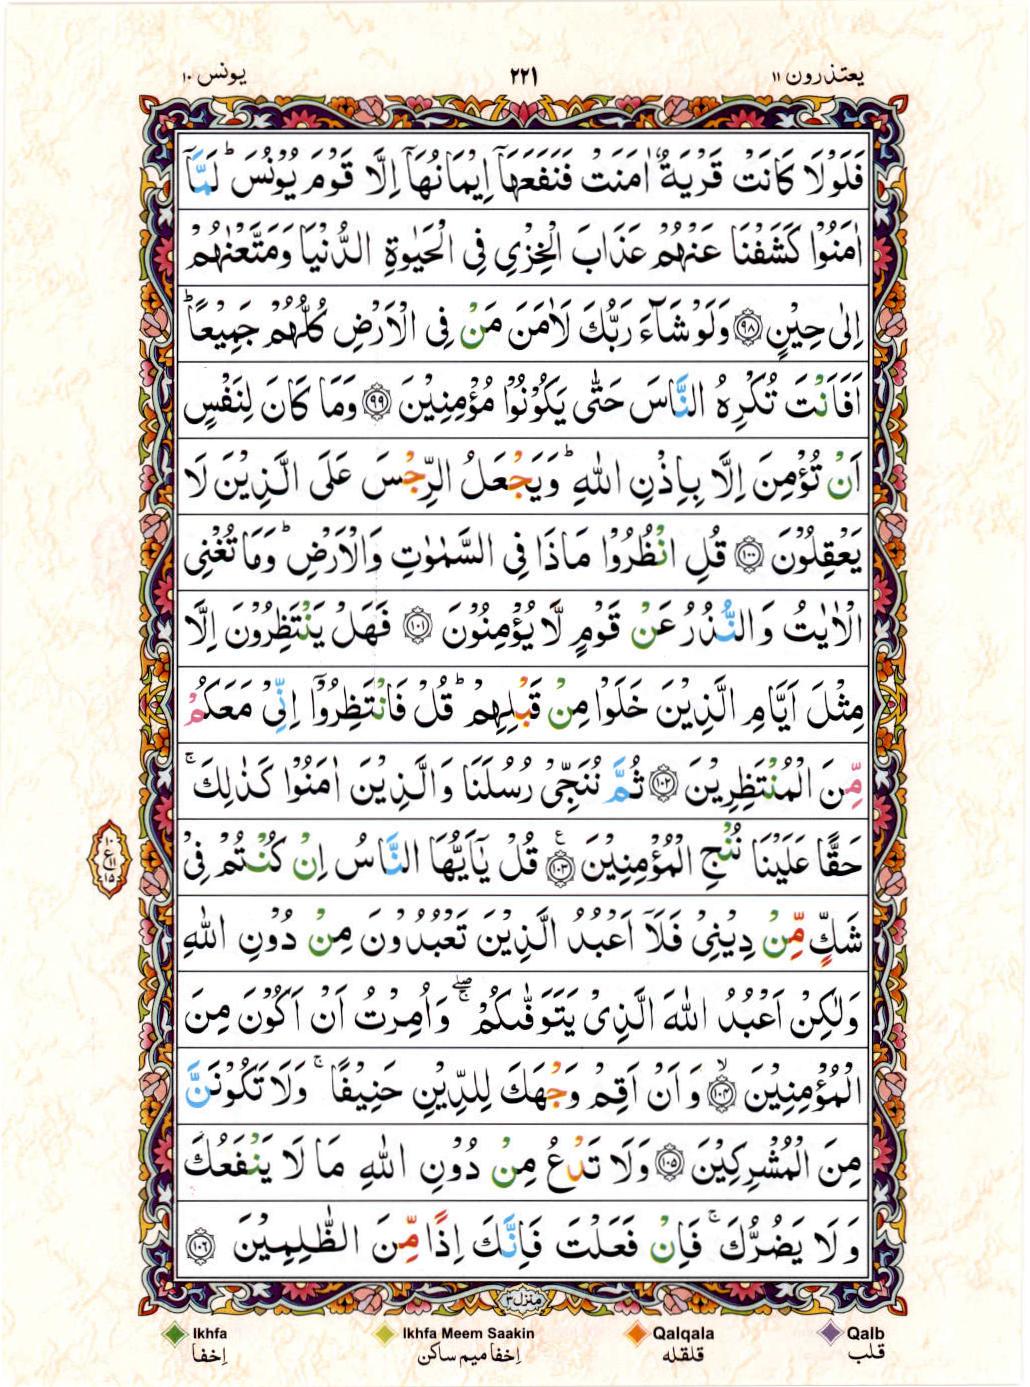 يعتذرون ١١
٢٢١
يونس ١٠
فَلَوْلَا كَانَتْ قَرْيَةٌ اٰمَنَتْ فَنَفَعَهَاۤ اِيْمَانُهَاۤ اِلَّا قَوْمَ يُوْنُسَ ؕ لَمَّاۤ
اٰمَنُوْا كَشَفْنَا عَنْهُمْ عَذَابَ الْخِزْيِ فِى الْحَيٰوةِ الدُّنْيَا وَمَتَّعْنٰهُمْ
اِلٰى حِيْنٍ ﴿۹۸﴾ وَلَوْ شَآءَ رَبُّكَ لَاٰمَنَ مَنْ فِى الْاَرْضِ كُلُّهُمْ جَمِيْعًا ؕ
اَفَاَنْتَ تُكْرِهُ النَّاسَ حَتّٰى يَكُوْنُوْا مُؤْمِنِيْنَ ﴿۹۹﴾ وَمَا كَانَ لِنَفْسٍ
اَنْ تُؤْمِنَ اِلَّا بِاِذْنِ اللّٰهِ ؕ وَيَجْعَلُ الرِّجْسَ عَلَى الَّذِيْنَ لَا
يَعْقِلُوْنَ ﴿۱۰۰﴾ قُلِ انْظُرُوْا مَاذَا فِى السَّمٰوٰتِ وَالْاَرْضِ ؕ وَمَا تُغْنِى
الْاٰيٰتُ وَالنُّذُرُ عَنْ قَوْمٍ لَّا يُؤْمِنُوْنَ ﴿۱۰۱﴾ فَهَلْ يَنْتَظِرُوْنَ اِلَّا
مِثْلَ اَيَّامِ الَّذِيْنَ خَلَوْا مِنْ قَبْلِهِمْ ؕ قُلْ فَانْتَظِرُوْۤا اِنِّىْ مَعَكُمْ
مِّنَ الْمُنْتَظِرِيْنَ ﴿۱۰۲﴾ ثُمَّ نُنَجِّىْ رُسُلَنَا وَالَّذِيْنَ اٰمَنُوْا كَذٰلِكَ ۚ
حَقًّا عَلَيْنَا نُنْجِ الْمُؤْمِنِيْنَ ﴿۱۰۳﴾ ع قُلْ يٰۤاَيُّهَا النَّاسُ اِنْ كُنْتُمْ فِىْ
۱۰ ع ۱۱ ۱۵
شَكٍّ مِّنْ دِيْنِىْ فَلَاۤ اَعْبُدُ الَّذِيْنَ تَعْبُدُوْنَ مِنْ دُوْنِ اللّٰهِ
وَلٰكِنْ اَعْبُدُ اللّٰهَ الَّذِىْ يَتَوَفّٰٮكُمْ ۖۚ وَاُمِرْتُ اَنْ اَكُوْنَ مِنَ
الْمُؤْمِنِيْنَ ۙ﴿۱۰۴﴾ وَاَنْ اَقِمْ وَجْهَكَ لِلدِّيْنِ حَنِيْفًا ۚ وَلَا تَكُوْنَنَّ
مِنَ الْمُشْرِكِيْنَ ﴿۱۰۵﴾ وَلَا تَدْعُ مِنْ دُوْنِ اللّٰهِ مَا لَا يَنْفَعُكَ
وَلَا يَضُرُّكَ ۚ فَاِنْ فَعَلْتَ فَاِنَّكَ اِذًا مِّنَ الظّٰلِمِيْنَ ﴿۱۰۶﴾
منزل ٣
Ikhfa
Ikhfa Meem Saakin
Qalqala
Qalb
إخفا
إخفا ميم ساكن
قلقله
قلب